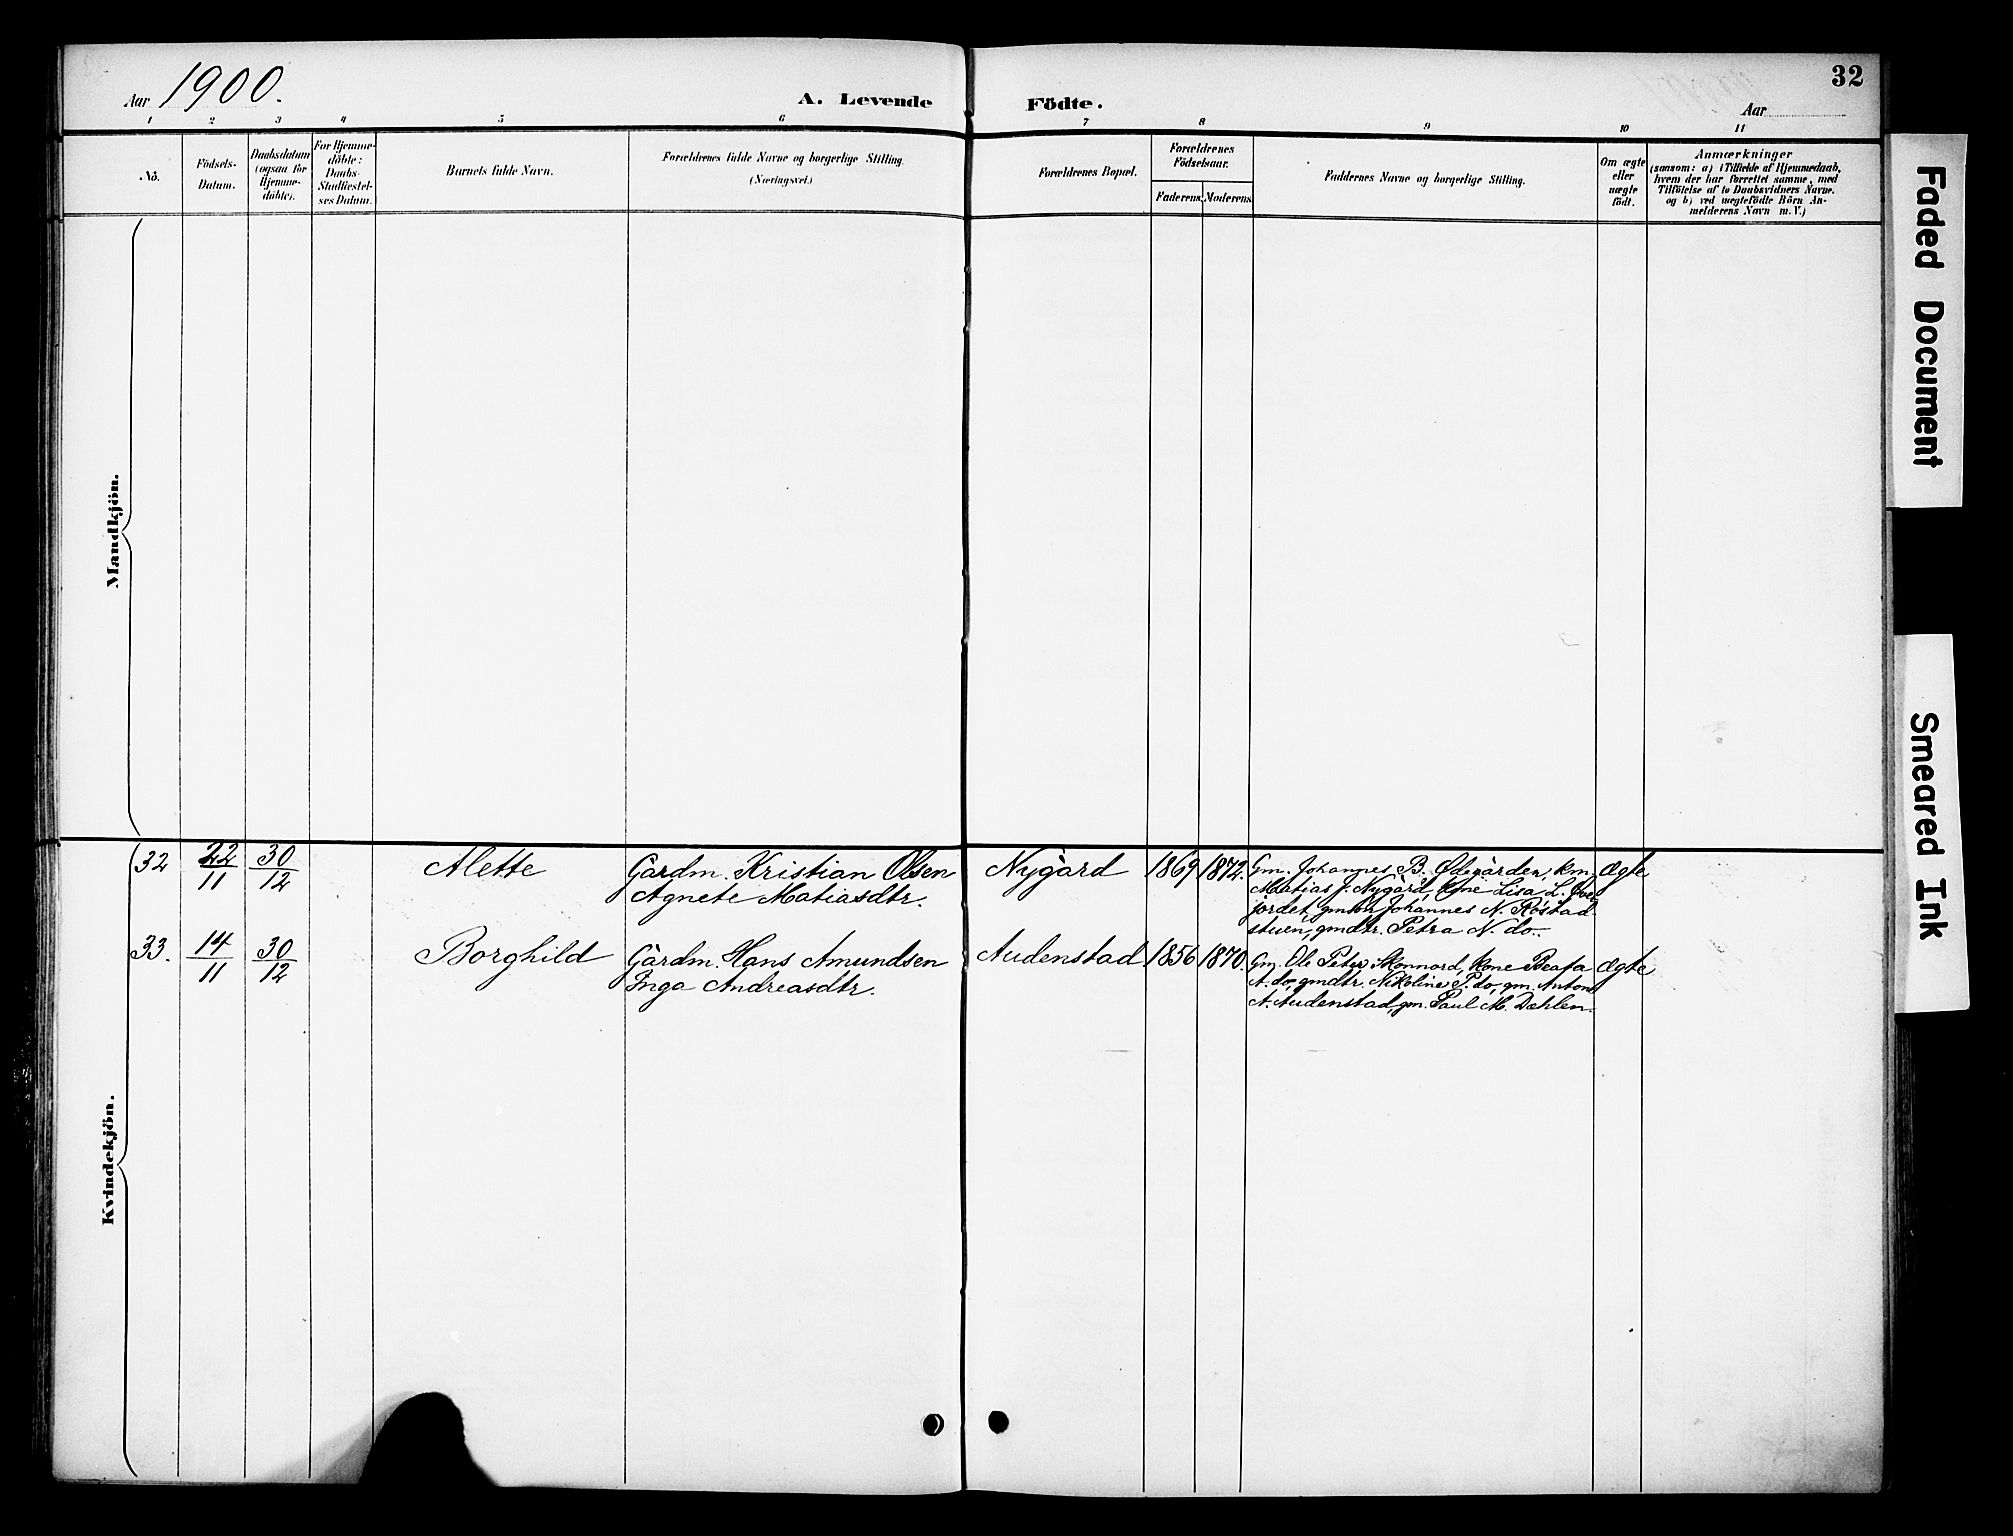 Aar 1900.
A. Levende Födte.
32
Aar
1 2 3 4 5 6 7 8 9 10 11
No.
Födsels-
Datum.
Daabsdatum
(ogsaa for
Hjemme-
döbte).
For Hjemme-
döbte:
Daabs-
Stadfæstel-
ses Datum.
Barnets fulde Navn.
Forældrenes fulde Navne og borgerlige Stilling.
(Næringsvei.)
Forældrenes Bopæl.
Forældrenes
Födselsaar.
Faderens. Moderens.
Faddernes Navne og borgerlige Stilling.
Om ægte
eller
uægte
födt.
Anmærkninger
(saasom: a) i Tilfælde af Hjemmedaab,
hvem der har forrettet samme, med
Tilföielse af to Daabsvidners Navne.
og b) ved uægtefödte Börn An-
melderens Navn m. V.)
Mandkjön.
Kvindekjön.
32 22/11 30/12 Alette
Gårdm. Kristian Olsen
Agnete Matiasdtr.
Nygård 1869 1872.
Gm. Johannes B. Ødegården, km.
Matias J. Nygård, kone Lisa L.
jordet, Johannes N. Röstad
stuen, gmdtr. Petra N. do.
Ægte
33. 14/11 30/12 Borghild
Gårdm. Hans Amundsen
Inga Andreasdtr.
Audenstad 1856 1870.
Gm. Ole Peter Skonnord, kone Beata
A. do, gmdtr. Nikoline P. do, gm. Anton
A. Audenstad, gm. Paul M. Dæhlen.
Ægte
Faded Document
Smeared Ink